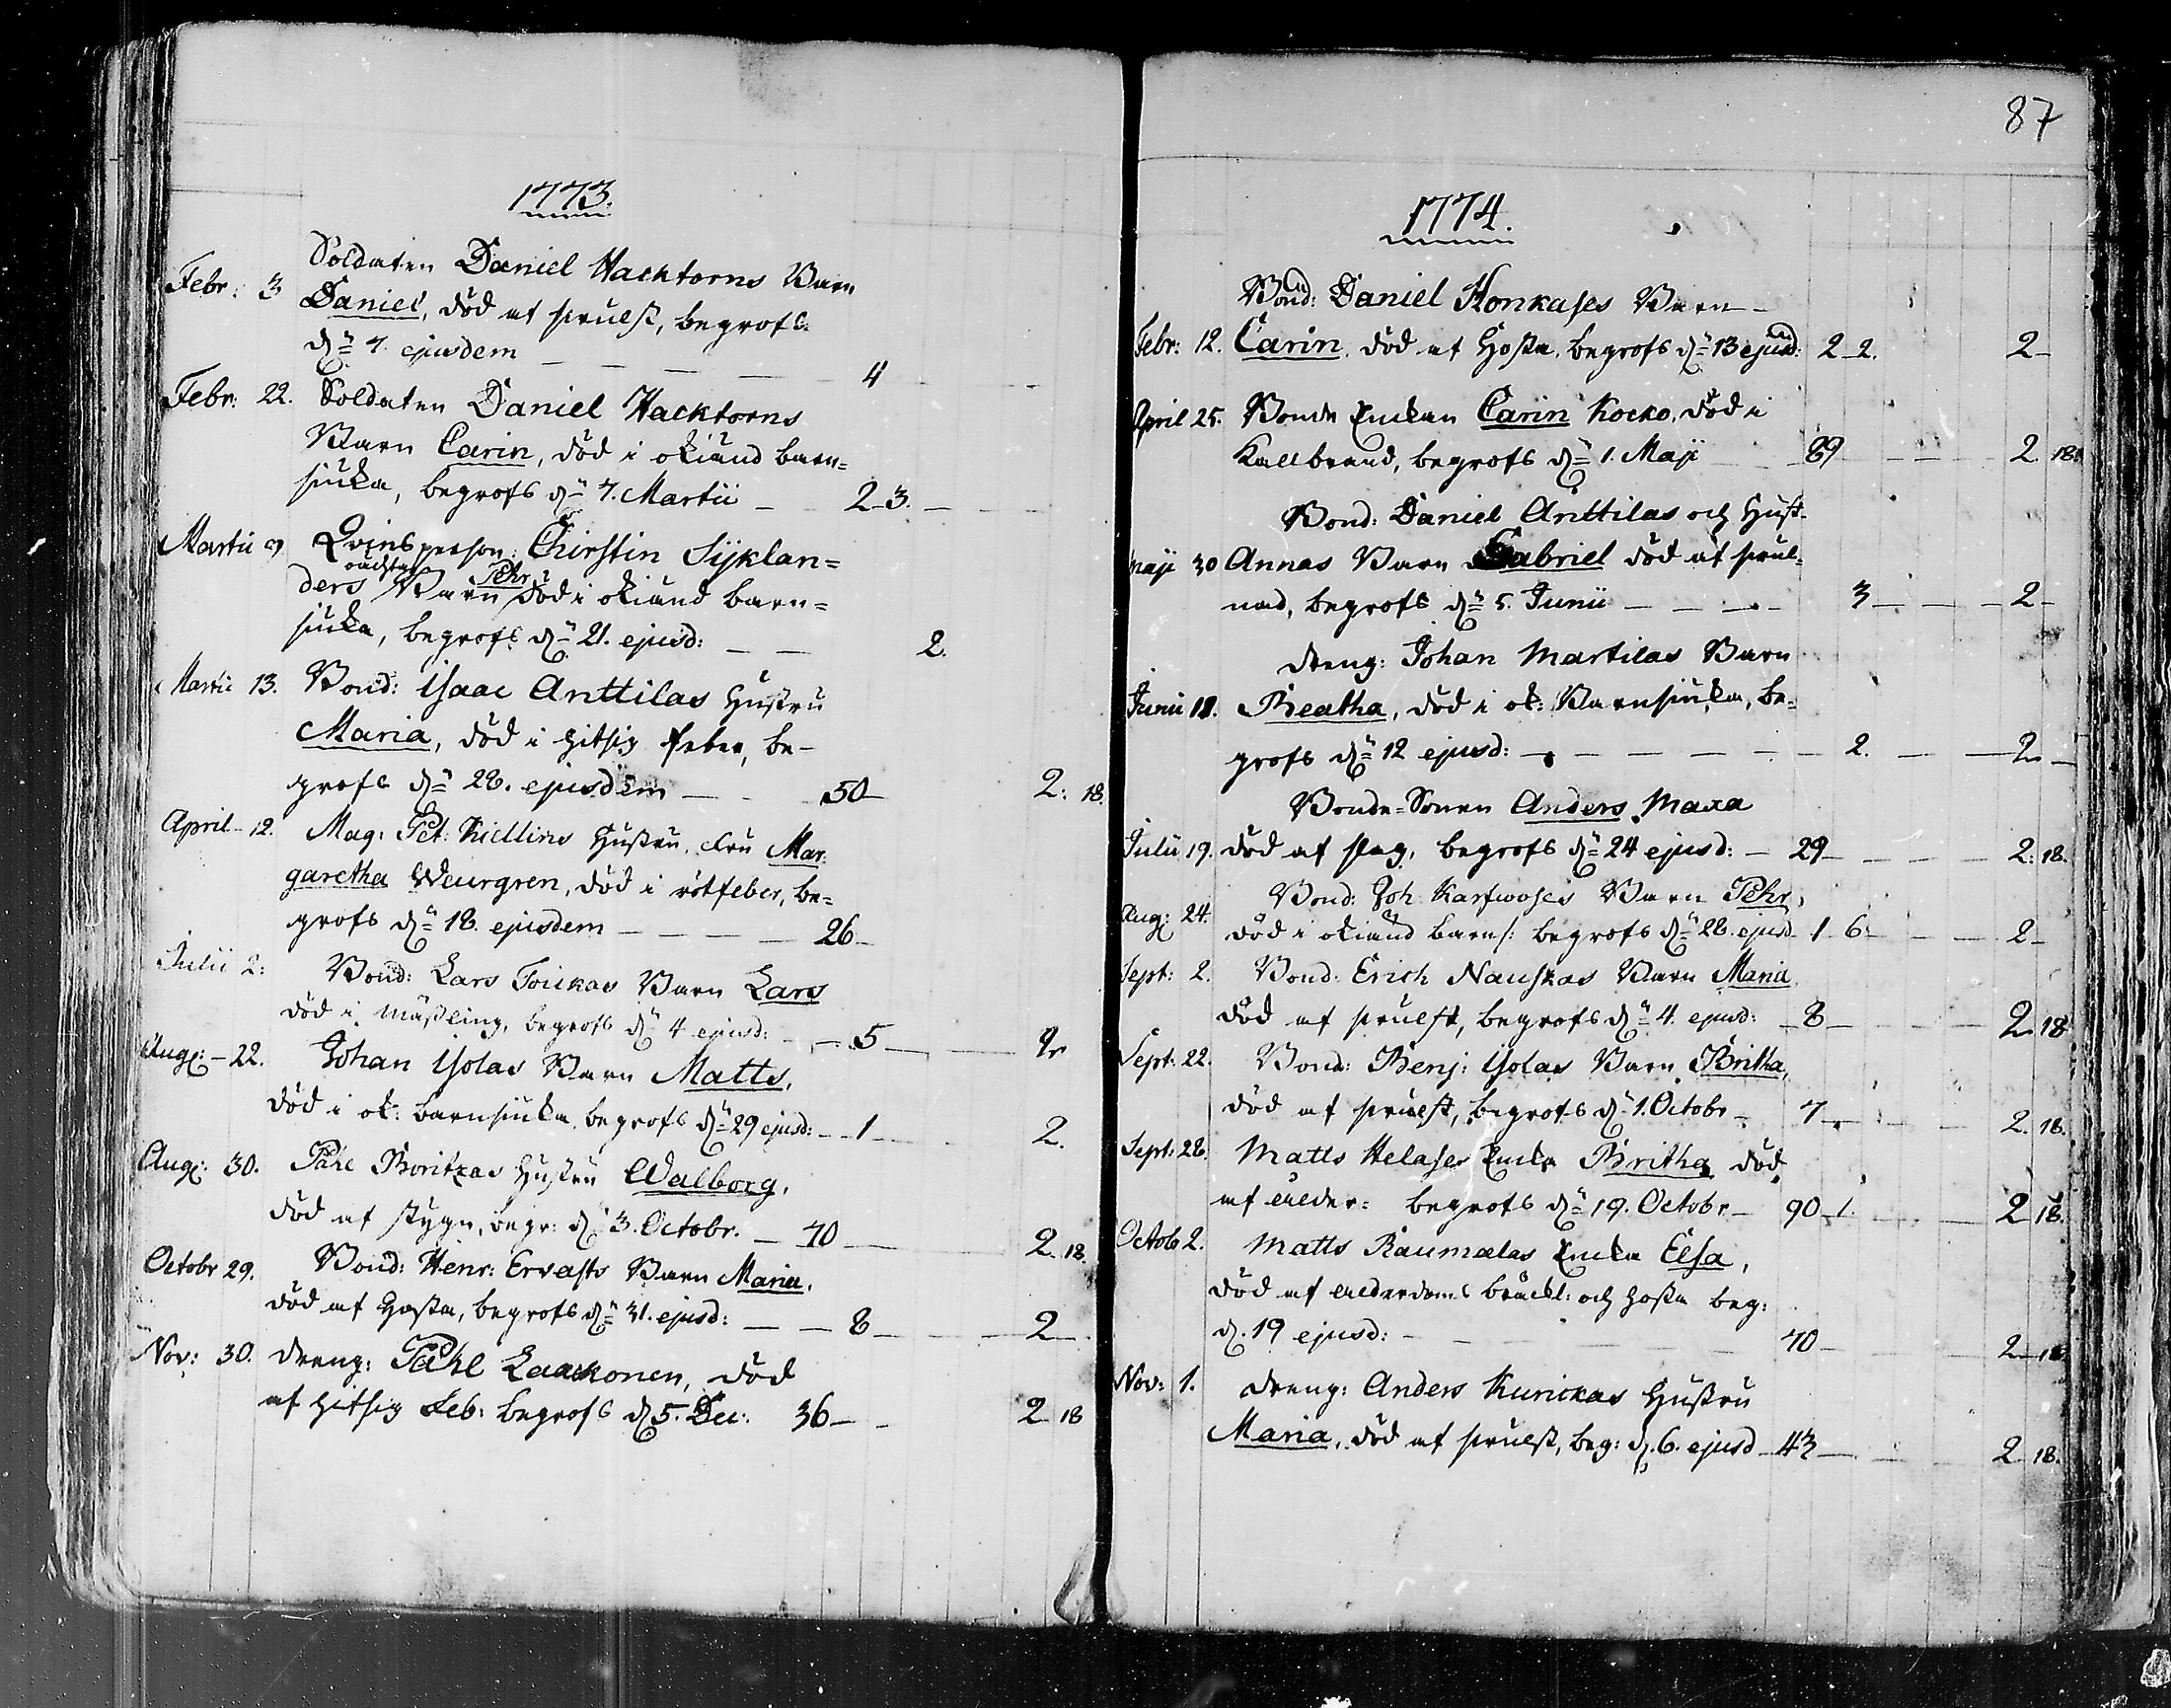 1773.
Soldaten Daniel Hacktorns Barn
Febr: 3 Daniel, död af swulst, begrofs
dn 7. ejusdem — — — — 4
Febr: 22. Soldaten Daniel Hacktorns
Barn Carin, död i okiänd barn=
siuka, begrofs dn 7. Martii — 2-3.
Martii 9 Qvinsperson: Chirstin Sijklan=
ders oächta Barn Pehr död i okiänd barn=
siuka, begrofs dn 21. ejusd: — — 2.
Martii 13. Bond: Isaac Anttilas Hustru
Maria, död i hitsig feber, be-
grofs dn 28. ejusdem — 50 — 2: 18.
April 12. Mag: Pet: Kiellins Hustru, Fru Mar
garetha Weurgren, död i rötfeber, be=
grofs dn 18. ejusdem — — — — 26—
Julii 2: Bond: Lars Toickas Barn Lars
död i mässling, begrofs dn 4 ejusd: — 5 — 2
Aug: — 22. Johan Isolas Barn Matts,
död i ok: barnsiuka, begrofs dn 29 ejusd: — 1 — 2.
Aug: 30. Påhl Poritzas Hustru Walborg,
död af stygn, begr: d. 3. Octobr. — 70 — 2. 18.
Octobr 29. Bond: Henr: Ervasts Barn Maria,
död af Hosta, begrofs dn 31. ejusd: — — 8 — 2 —
Nov: 30. Dreng: Påhl Laakonen, död
af hitsig Feb: begrofs d. 5. Dec: 36 — 2 18
87
1774.
Bond: Daniel Honkases Barn
Febr: 12. Carin, död af Hosta, begrofs dn 13 ejusd: 2-2. 2-
April 25. Bonde Enckan Carin Kocko, död i
Kallbrand, begrofs dn 1. Maji 89 — 2. 18.
Bond: Daniel Anttilas och Hust-
Maji 30 Annas Barn Gabriel död af swul=
nad, begrofs dn 5. Junii — — — 3 — 2-
Dreng: Johan Martilas Barn
Junii 11. Beatha, död i ok: Barnsiuka, be=
grofs dn 12 ejusd: — — — — 2. — 2 —
Bonde-Sonen Anders Maxa
Julii 19. död af slag, begrofs dn 24 ejusd: — 29 — 2: 18.
Bond: Joh: Karfwoses Barn Pehr,
Aug: 24. död i okiänd barns: begrofs dn 28. ejusd 1-6 — 2-
Sept: 2. Bond: Erich Nauskas Barn Maria
död af swulst, begrofs dn 4. ejusd: — 8 — 2 18
Sept: 22. Bond: Benj: Isolas Barn Britha,
död af swulst, begrofs d. 1. Octobr — 7 — 2. 18.
Sept: 26. Matts Helases Encka Britha död
af ålder: begrofs dn 19. Octobr — 90-1. — 2 18.
Octob 2. Matts Raumalas Encka Elsa,
död af ålderdoms bräckl: och hosta beg:
d. 19 ejusd: — — — 70 — 2-18
Nov: 1. Dreng: Anders Kurickas Hustru
Maria, död af swulst, beg: d. 6. ejusd — 43 — 2 18.